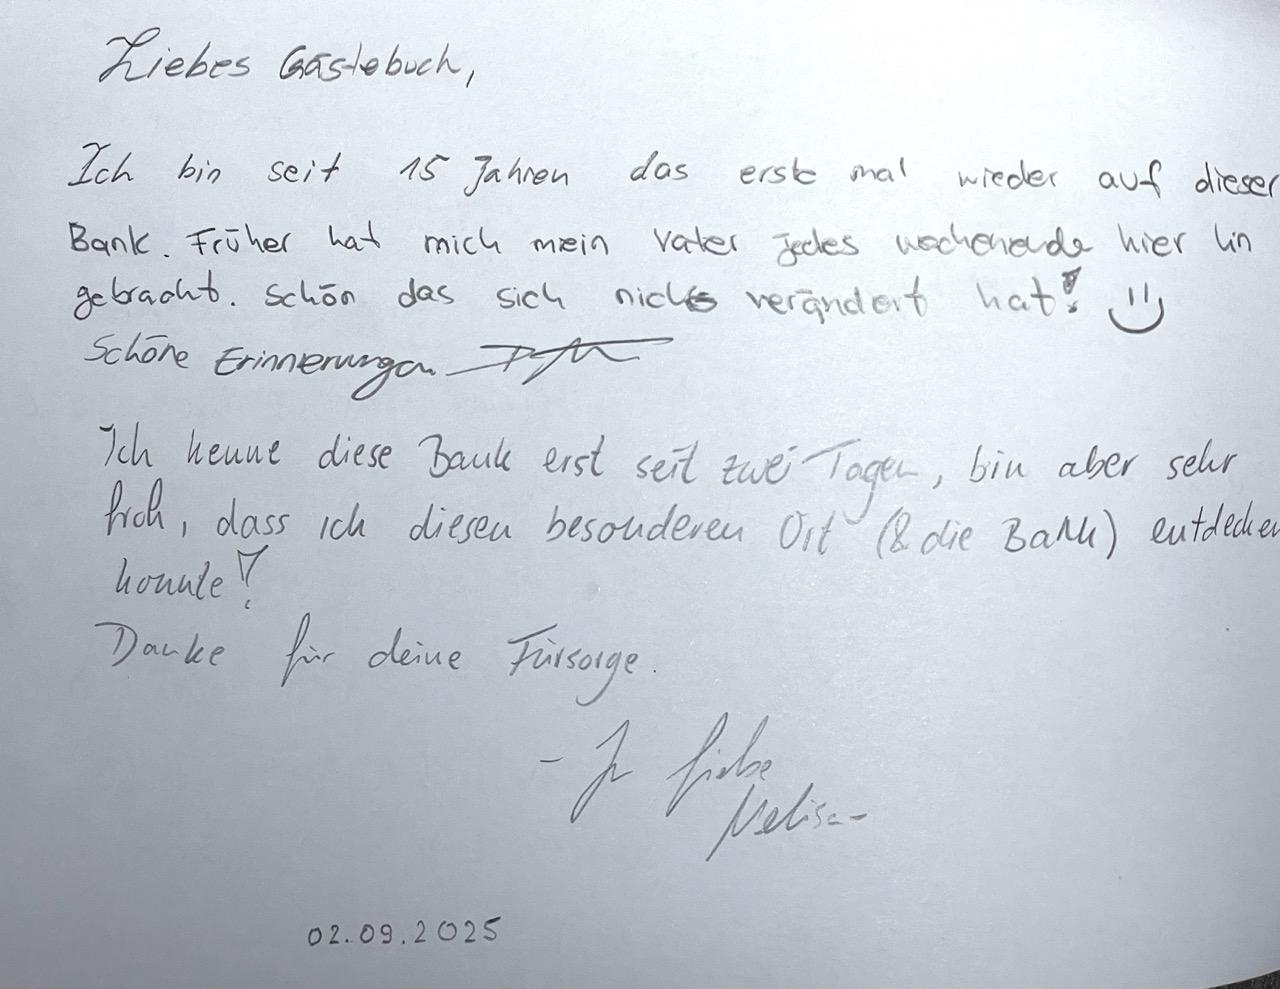 Liebes Gästebuch,
Ich bin seit 15 Jahren das erste mal wieder auf dieser
Bank. Früher hat mich mein Vater jedes wochenende hier hin
gebracht. Schön das sich nichts verändert hat! :)
Schöne Erinnerungen
Ich kenne diese Bank erst seit zwei Tagen, bin aber sehr
froh, dass ich diesen besonderen Ort (& die Bank) entdecken
konnte!
Danke für deine Fürsorge.
- In Liebe
Melisa-
02.09.2025